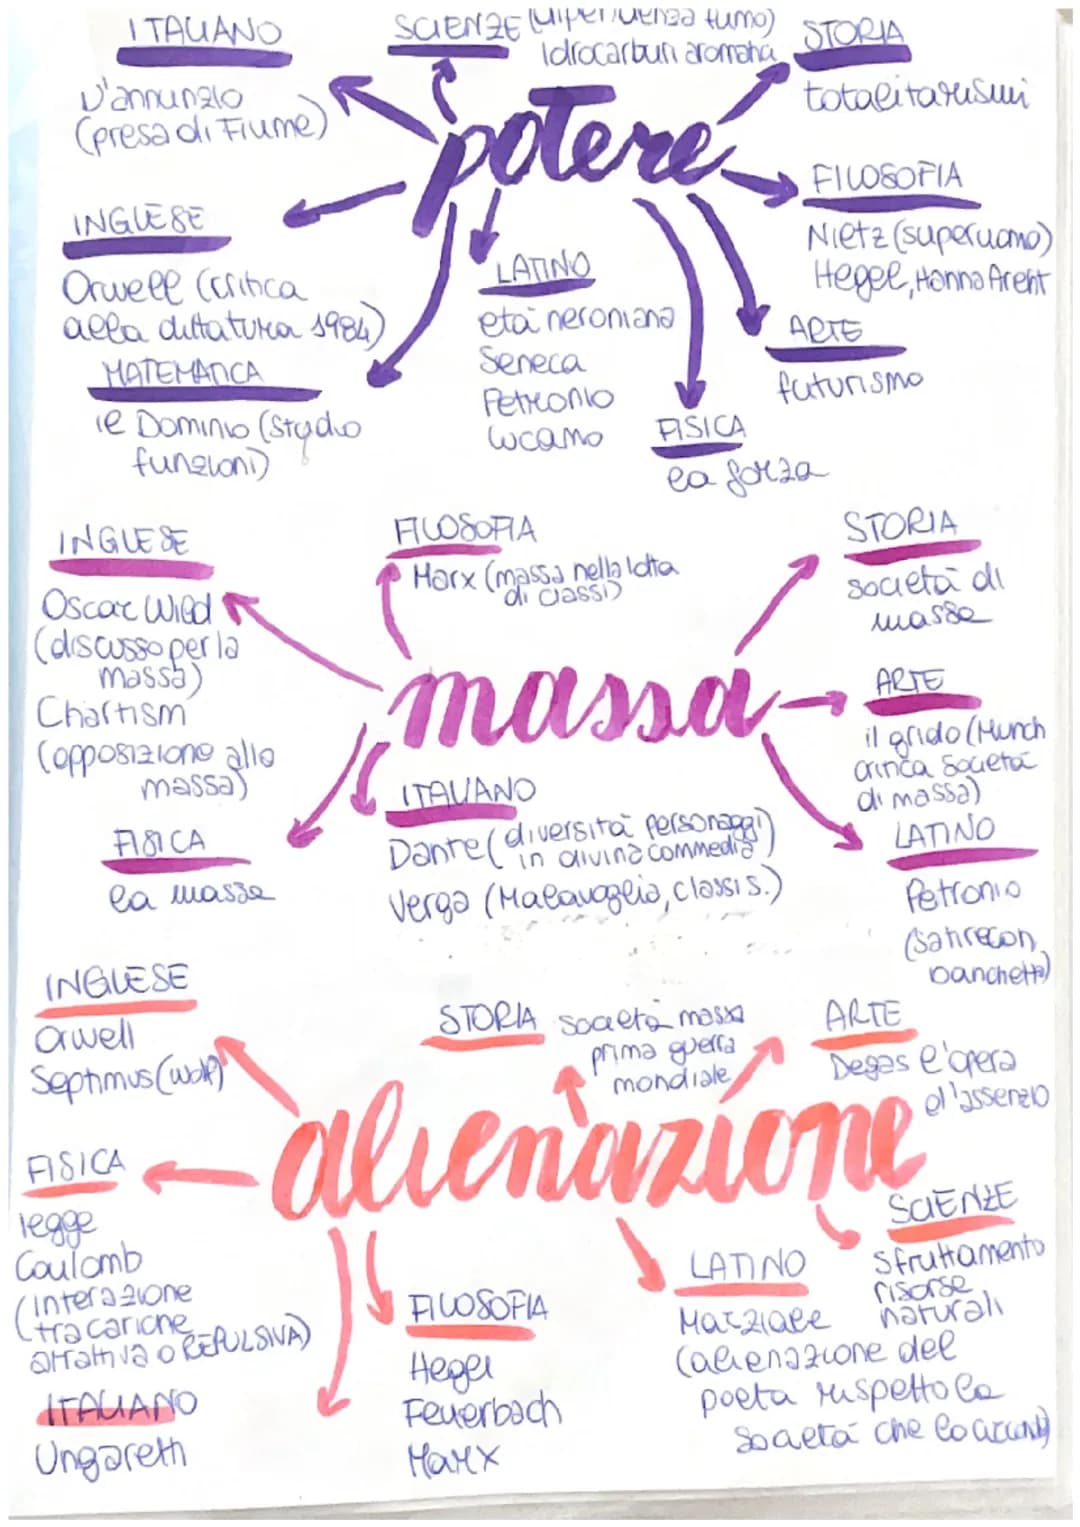 ITALIANO
D'annunzio
(presa di Fiume)
SCIENZE (dipendenza fumo)
Idrocarburi aromatici
STORIA
totalitarismi
potere
FILOSOFIA
Nietz (superuomo)
Hegel, Hanna Arent
INGLESE
Orwell (critica
alla dittatura 1984)
LATINO
età neroniana
Seneca
Petronio
Lucano
ARTE
futurismo
MATEMATICA
il Dominio (studio
funzioni)
FISICA
la forza
INGLESE
Oscar Wild
(discusso per la
massa)
Chartism
(opposizione alla
massa)
FILOSOFIA
Marx (massa nella lotta
di classi)
STORIA
società di
massa
massa
ARTE
il grido (Munch
critica società
di massa)
FISICA
la massa
ITALIANO
Dante (diversità personaggi
in divina commedia)
Verga (Malavoglia, classi s.)
LATINO
Petronio
(satirecon,
banchetti)
INGLESE
Orwell
Septimus (Wolf)
STORIA società massa
prima guerra
mondiale
ARTE
Degas l'opera
l'assenzio
alienazione
FISICA
legge
Coulomb
(interazione
tra cariche
attrattiva o REPULSIVA)
SCIENZE
sfruttamento
risorse
naturali
ITALIANO
Ungaretti
FILOSOFIA
Hegel
Feuerbach
Marx
LATINO
Marziale
(alienazione del
poeta rispetto la
società che lo circonda)